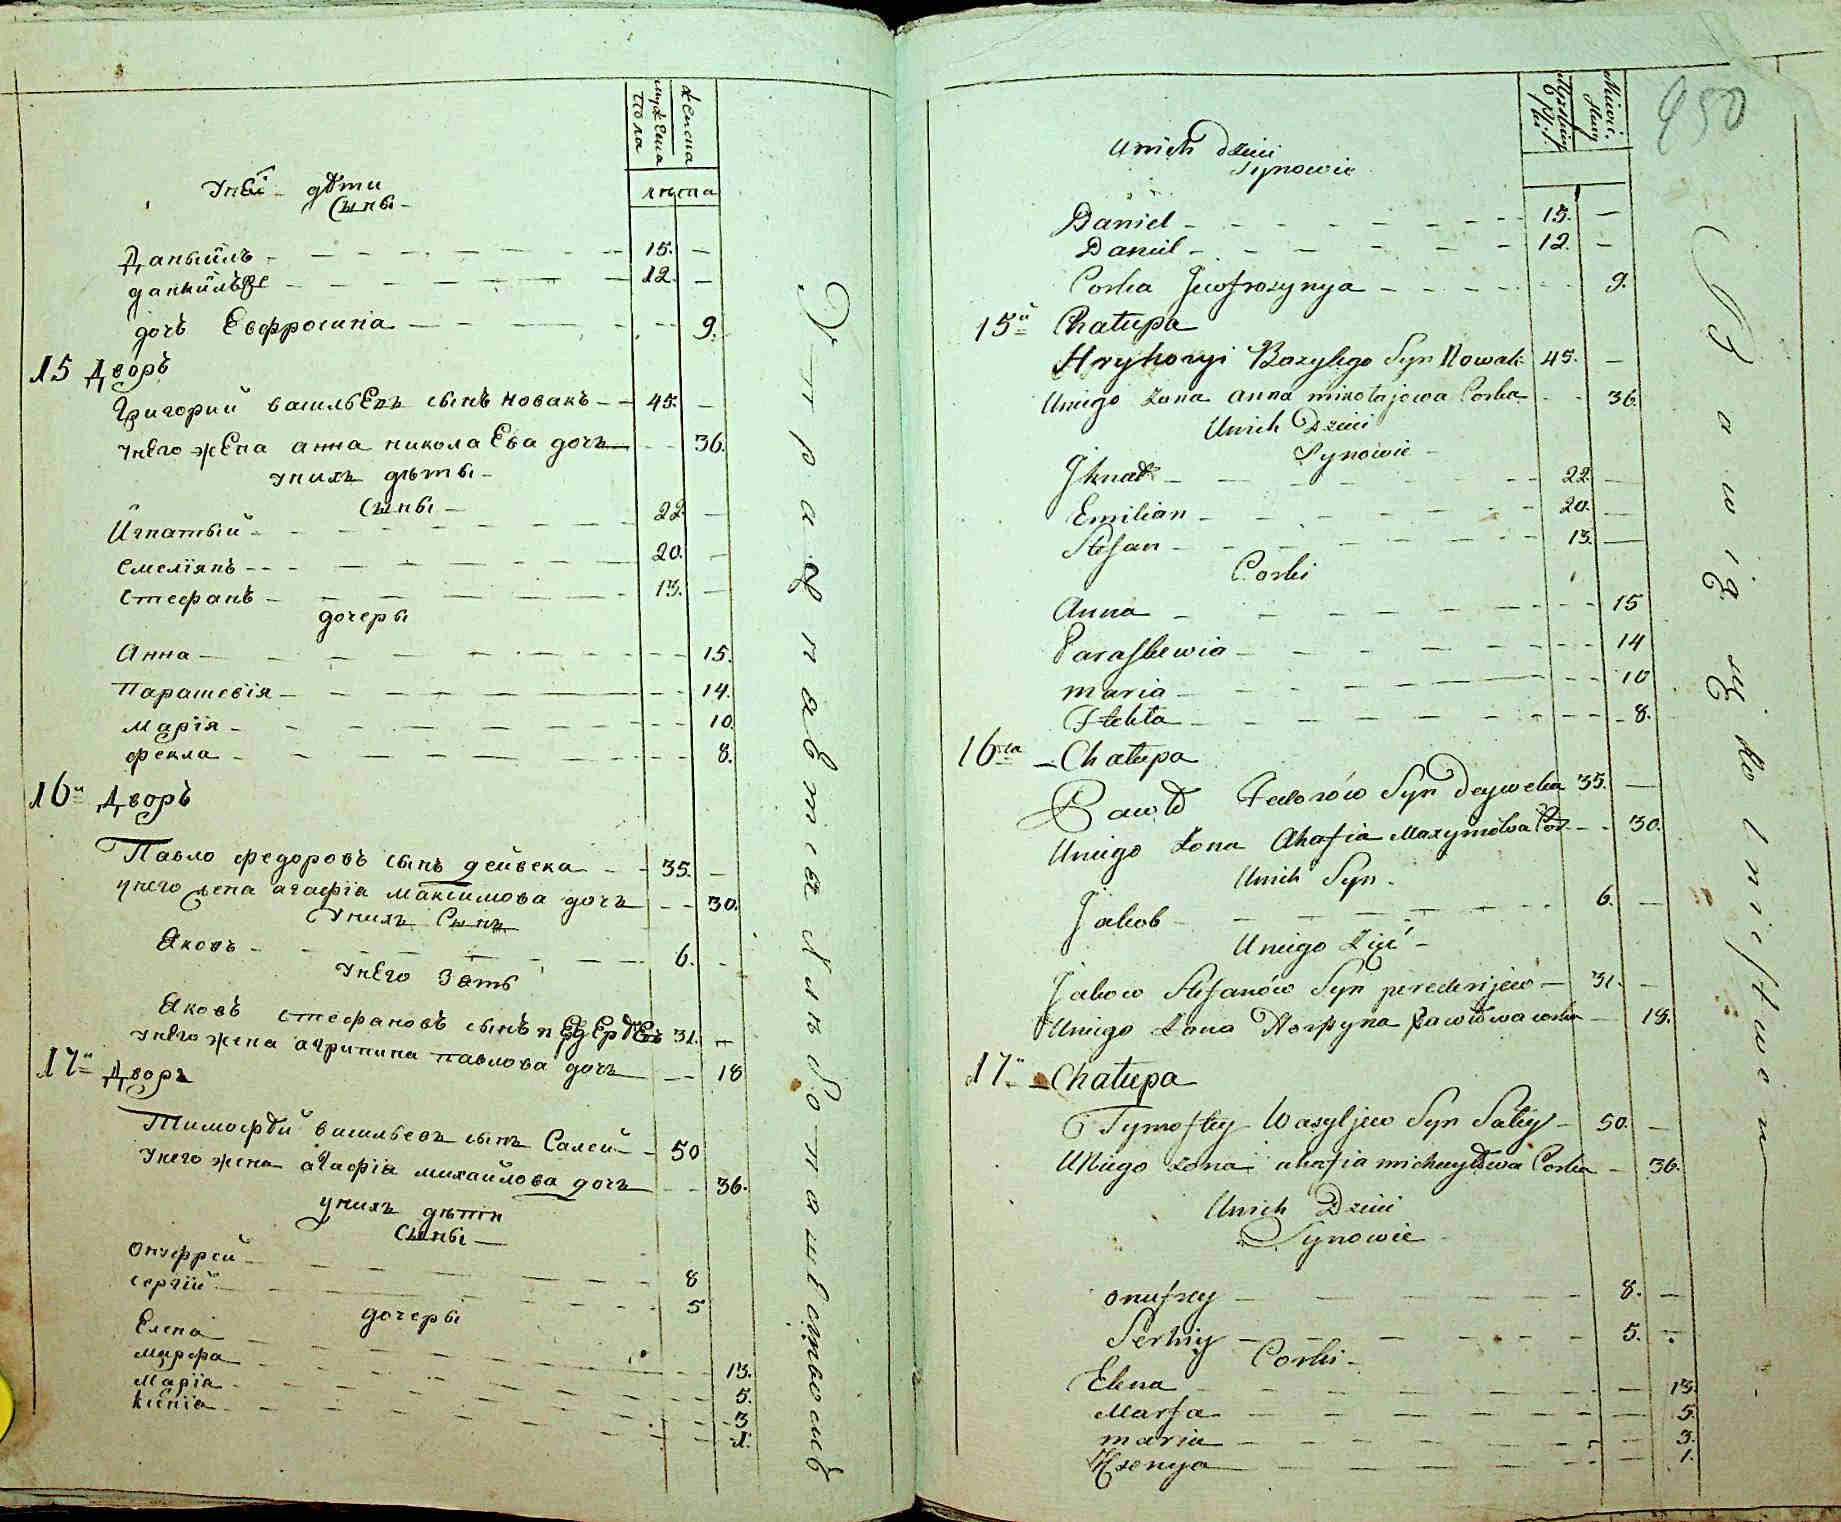 мужеска
пола
женска
лѣта
Уней дѣти
Сыны
Даныилъ 15. —
даныилъ же 12. —
дочъ Евфросина 9.
15 Дворъ
Григорий васильевъ сынъ новакъ 45. —
унего жена анна николаева дочъ 36.
унихъ дѣты
Сыны
Игнатый 22 —
емелїянъ 20. —
стефанъ 13. —
дочеры
Анна 15.
парашевїя 14.
марїя 10.
фекла 8.
16й Дворъ
Павло федоровъ сынъ дейвека 35. —
унего жена агафїа максимова дочъ 30.
Унихъ Сынъ
Яковъ 6. —
унего зять
Яковъ стефановъ сынъ 31. —
унего жена агрипина павлова дочъ 18
17й Дворъ
Тимофѣй васильевъ сынъ Салей 50
унего жена агафїа михайлова дочъ 36.
унихъ дѣти
Сыны
онуфрей 8
сергїй 5
дочеры
Елена 13.
марфа 5.
марїа 3
ксенїа 1.
950
Unich dzieci
Synowie
Daniel 15. —
Daniel 12. —
Corka Jewfrozynya 9.
15а Chałupa
Hryhoryi Bazylego Syn Nowak 45. —
Uniego Żona anna mikołajowa Corka 36.
Unich Dzieci
Synowie
Jhnat 22. —
Emilian 20. —
Stefan 13. —
Corki
Anna 15
Paraskewia 14
maria 10
Thekla 8.
16ta Chałupa
Pawło Fedorów Syn Deyweka 35. —
Uniego Żona Ahafia Maxymowa Cor. 30.
Unich Syn
Jakob 6. —
Uniego Zięć
Jakow Stefanów Syn 31. —
Uniego Żona Horpyna Pawłowa corka 18.
17a Chałupa
Tymofiey Wasyljew Syn Saley 50. —
Uniego żona ahafia michayłowa Corka 36.
Unich Dzieci
Synowie
onufrey 8. —
Serhiy 5.
Corki
Elena 13.
Marfa 5.
maria 3.
Xsenya 1.